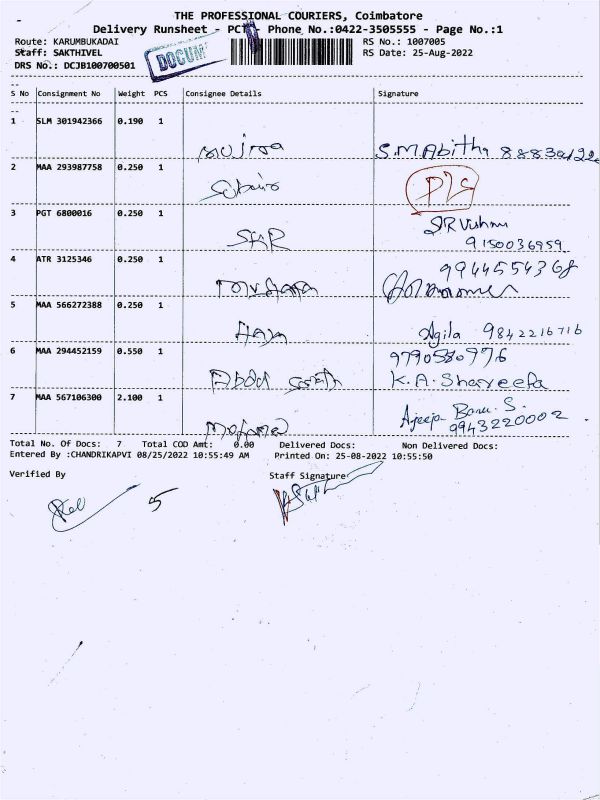 THE PROFESSIONAL COURIERS, Coimbatore
Delivery Runsheet - PCT Phone No.:0422-3505555 - Page No.:1
Route: KARUMBUKADAI RS No.: 1007005
Staff: SAKTHIVEL RS Date: 25-Aug-2022
DRS No.: DCJB100700501
DOCUM
S No Consignment No Weight PCS Consignee Details Signature
1 SLM 301942366 0.190 1
S.M Abitha
2 MAA 293987758 0.250 1
3 PGT 6800016 0.250 1
SKR
9150036959
4 ATR 3125346 0.250 1
9944554368
5 MAA 566272388 0.250 1
Agila 9842216716
6 MAA 294452159 0.550 1
9790580976
K.A. Sharveefa
7 MAA 567106300 2.100 1
Banu. S.
9943220002
Total No. Of Docs: 7 Total COD Amt: 0.00 Delivered Docs: Non Delivered Docs:
Entered By :CHANDRIKAPVI 08/25/2022 10:55:49 AM Printed On: 25-08-2022 10:55:50
Verified By Staff Signature
5